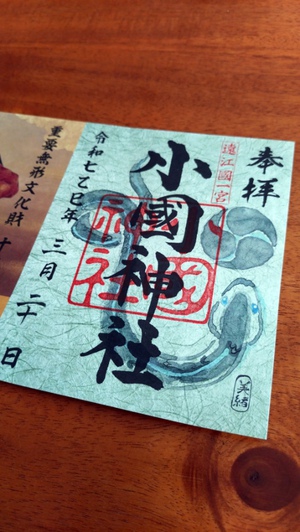 奉拝
遠江國一宮
小國神社
令和七乙巳年
三月二十日
重要無形文化財
美緒